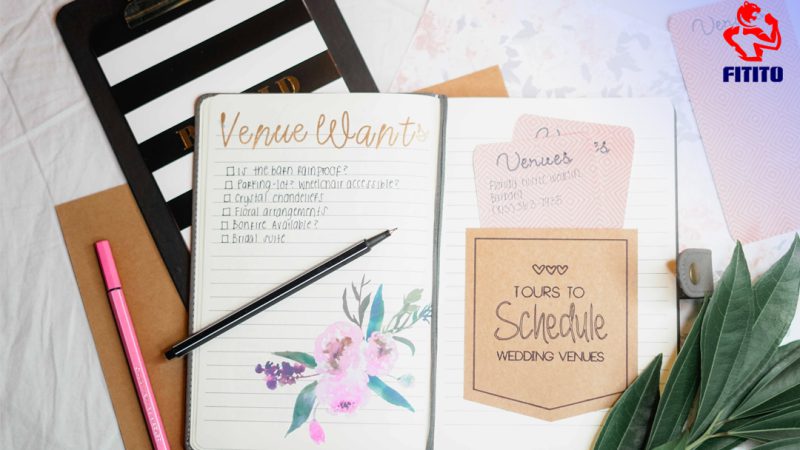 Venue Wants
Is the barn rainproof?
Parking-lot? Wheelchair accessible?
Crystal chandeliers
Floral arrangements
Bonfire Available?
Bridal suite
Venues
TOURS TO
Schedule
WEDDING VENUES
FITITO